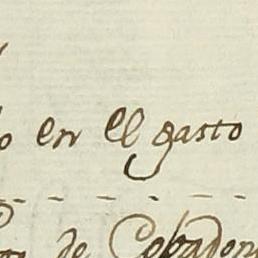 en el gasto
de Cobadon